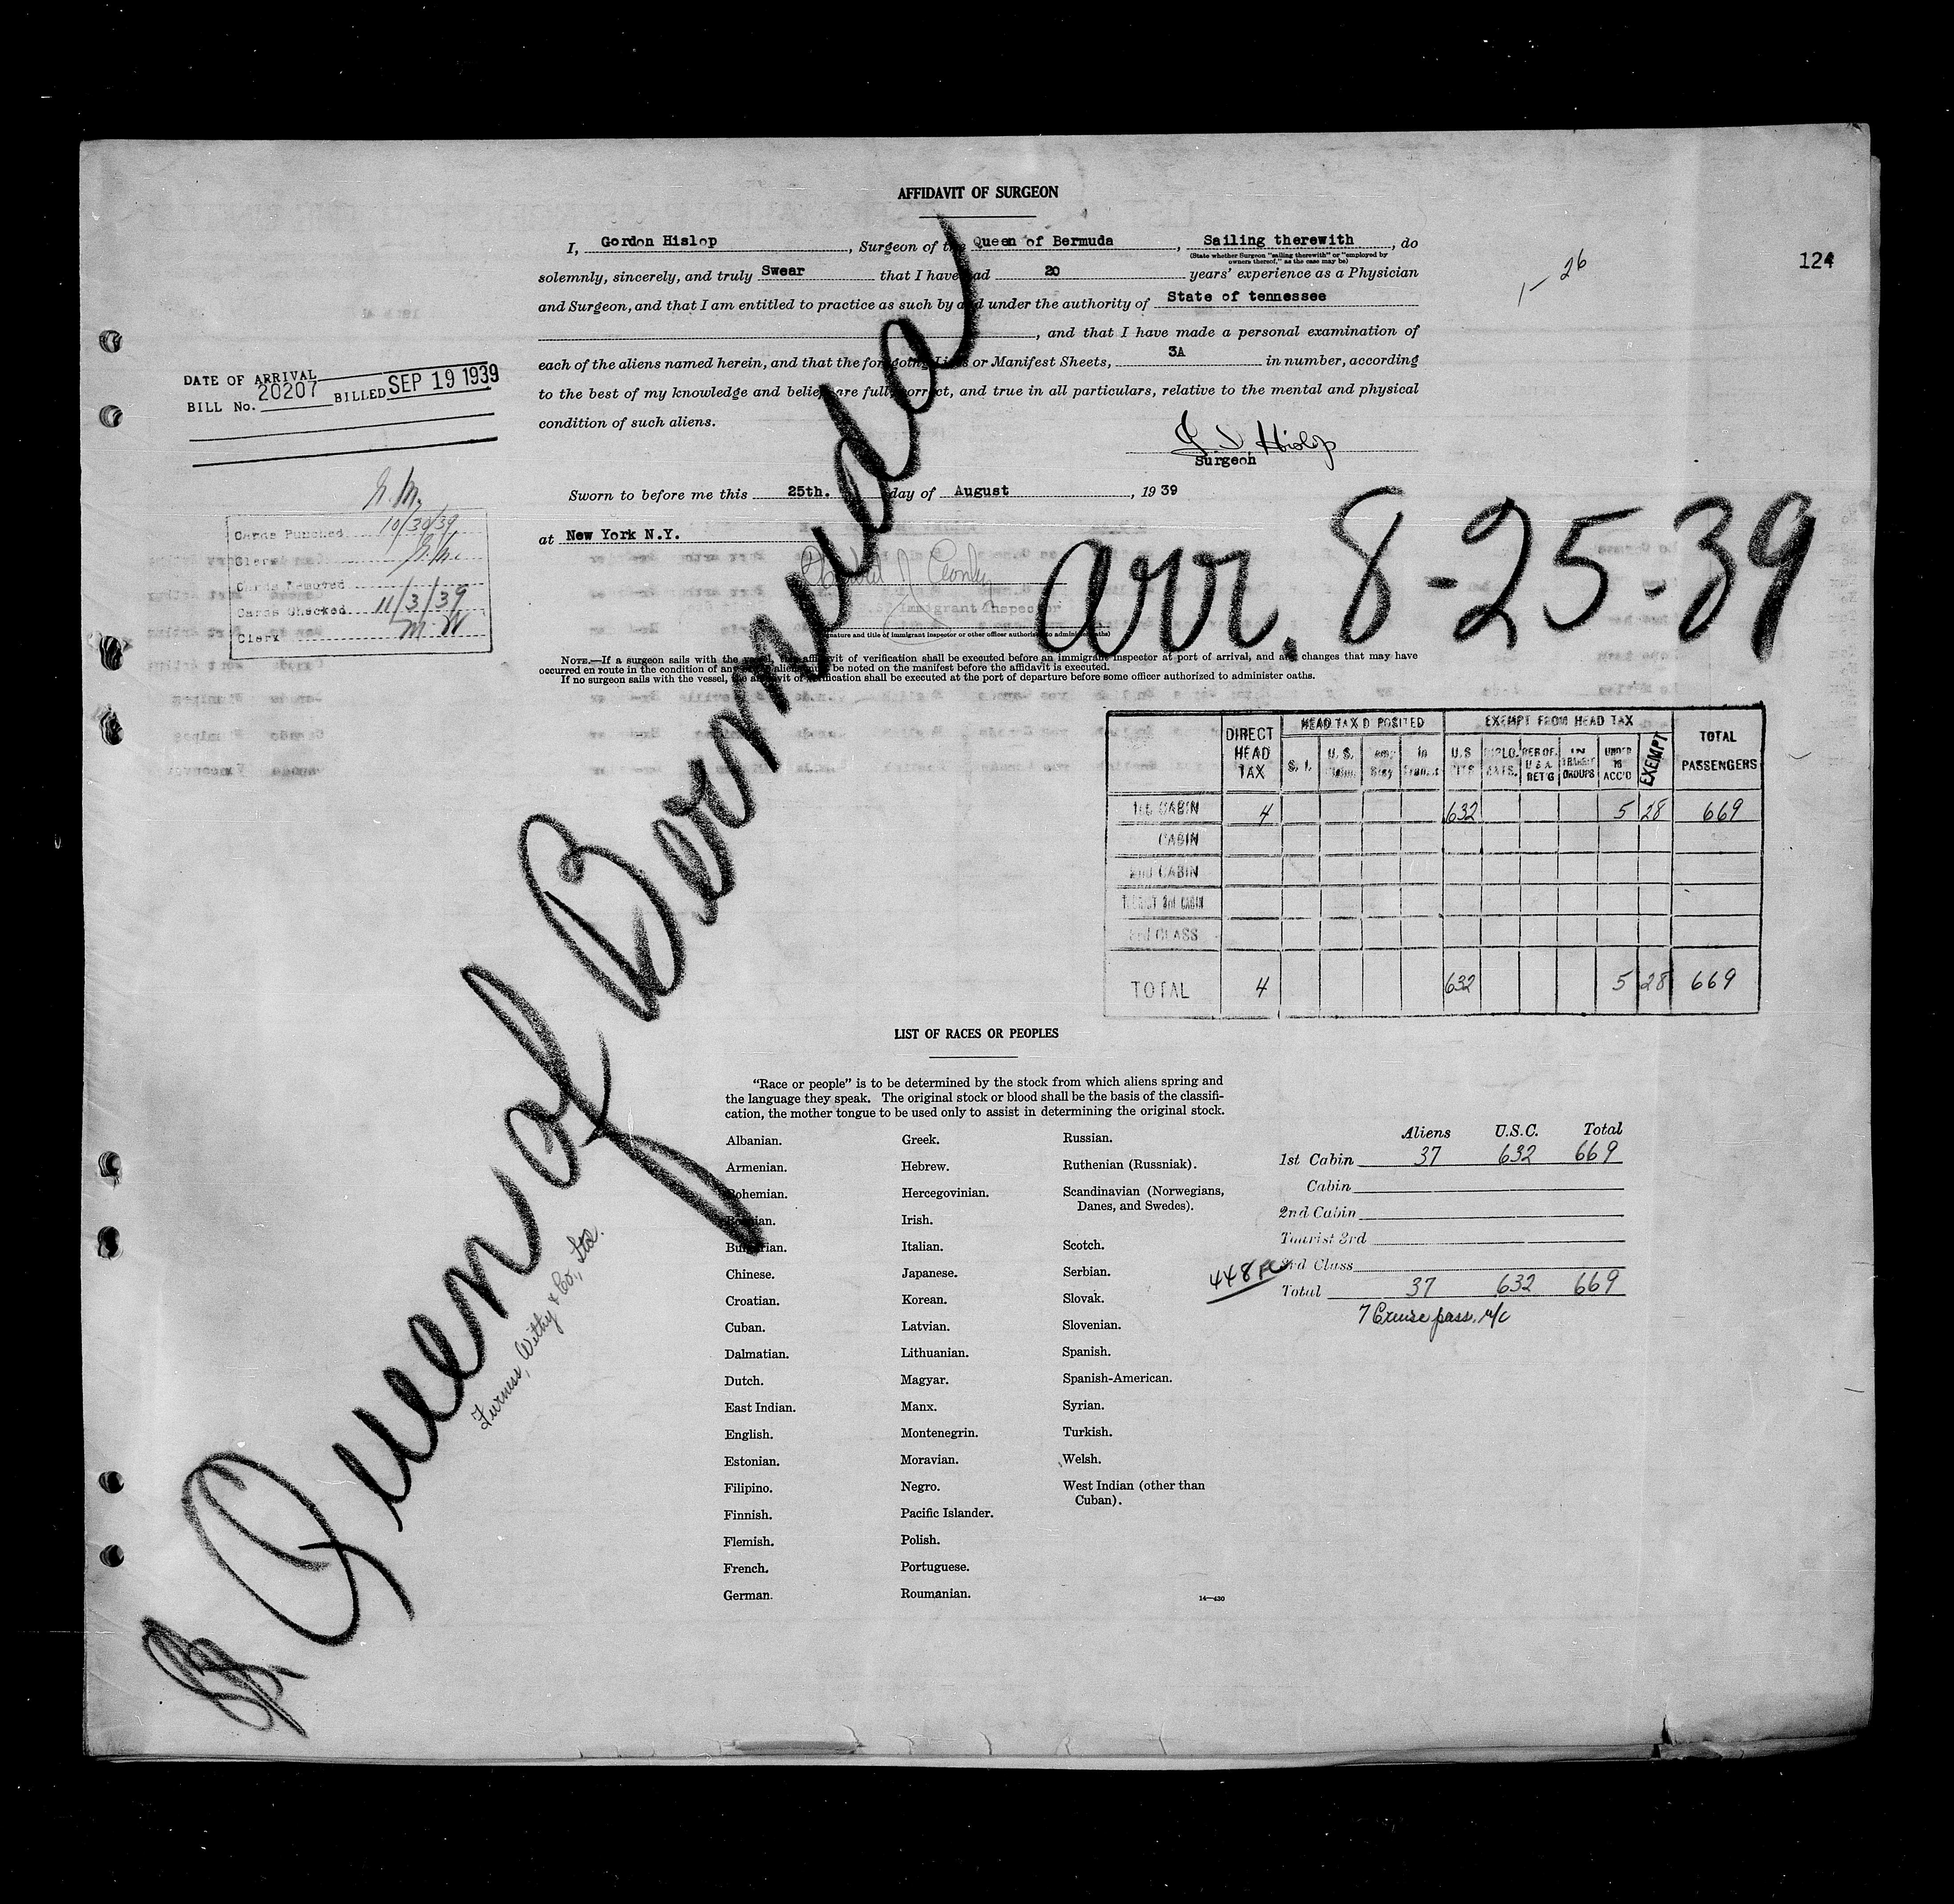 AFFIDAVIT OF SURGEON
I, Gordon Hislop, Surgeon of the Queen of Bermuda, Sailing therewith, do
(State whether Surgeon "sailing therewith" or "employed by
owners thereof," as the case may be)
solemnly, sincerely, and truly Swear that I have had 20 years' experience as a Physician
and Surgeon, and that I am entitled to practice as such by and under the authority of State of tennessee
, and that I have made a personal examination of
each of the aliens named herein, and that the foregoing Lists or Manifest Sheets, 3A in number, according
to the best of my knowledge and belief, are full, correct, and true in all particulars, relative to the mental and physical
condition of such aliens.
Hislop
Surgeon
Sworn to before me this 25th. day of August, 1939
at New York N.Y.
Immigrant Inspector
(Signature and title of immigrant inspector or other officer authorized to administer oaths)
NOTE.—If a surgeon sails with the vessel, the affidavit of verification shall be executed before an immigrant inspector at port of arrival, and any changes that may have
occurred en route in the condition of any alien must be noted on the manifest before the affidavit is executed.
If no surgeon sails with the vessel, the affidavit of verification shall be executed at the port of departure before some officer authorized to administer oaths.
1-26
124
DATE OF ARRIVAL
BILL No. 20207 BILLED SEP 19 1939
Cards Punched 10/30/39
Clerk
Cards Removed
Cards Checked 11/3/39
Clerk M W
arr. 8-25-39
Queen of Bermuda
Furness, Withy & Co., Ltd.
DIRECT HEAD TAX HEAD TAX D POSITED EXEMPT FROM HEAD TAX TOTAL PASSENGERS
S. I. U. S. In Transit U.S. CITS DIPLOMATS. RES OF U S A RET'G IN TRANSIT GROUPS UNDER 16 ACC'D EXEMPT
1st CABIN 4 632 5 28 669
CABIN
2nd CABIN
TOURIST 3rd CABIN
3rd CLASS
TOTAL 4 632 5 28 669
LIST OF RACES OR PEOPLES
"Race or people" is to be determined by the stock from which aliens spring and
the language they speak. The original stock or blood shall be the basis of the classifi-
cation, the mother tongue to be used only to assist in determining the original stock.
Albanian.
Armenian.
Bohemian.
Bosnian.
Bulgarian.
Chinese.
Croatian.
Cuban.
Dalmatian.
Dutch.
East Indian.
English.
Estonian.
Filipino.
Finnish.
Flemish.
French.
German.
Greek.
Hebrew.
Hercegovinian.
Irish.
Italian.
Japanese.
Korean.
Latvian.
Lithuanian.
Magyar.
Manx.
Montenegrin.
Moravian.
Negro.
Pacific Islander.
Polish.
Portuguese.
Roumanian.
Russian.
Ruthenian (Russniak).
Scandinavian (Norwegians,
Danes, and Swedes).
Scotch.
Serbian.
Slovak.
Slovenian.
Spanish.
Spanish-American.
Syrian.
Turkish.
Welsh.
West Indian (other than
Cuban).
14—430
Aliens U.S.C. Total
1st Cabin 37 632 669
Cabin
2nd Cabin
Tourist 3rd
3rd Class
Total 37 632 669
448
7 Cruise pass.